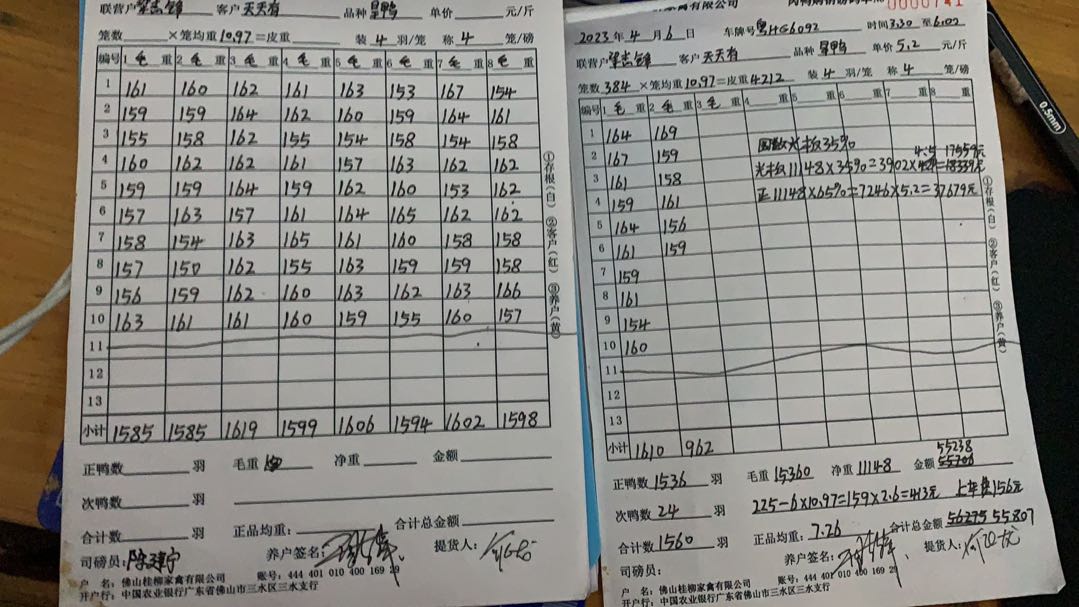 联营户 梁志锋 客户 天天有 品种 皇鸭 单价 元/斤
笼数 ×笼均重10.97=皮重 装 4 羽/笼 称 4 笼/磅
编号 1 毛 重 2 毛 重 3 毛 重 4 毛 重 5 毛 重 6 毛 重 7 毛 重 8 毛 重
1 161 160 162 161 163 153 167 154
2 159 159 164 162 160 159 164 161
3 155 158 162 155 154 158 154 158
4 160 162 162 161 157 163 162 162
5 159 159 164 159 162 160 153 162
6 157 163 157 161 164 165 162 162
7 158 154 163 165 161 160 158 158
8 157 150 162 155 163 159 159 158
9 156 159 162 160 163 162 163 166
10 163 161 161 160 159 155 160 157
11
12
13
小计 1585 1585 1619 1599 1606 1594 1602 1598
①存根(白) ②客户(红) ③养户(黄)
正鸭数 羽 毛重 净重 金额
次鸭数 羽
合计数 羽 正品均重: 合计总金额
司磅员: 养户签名: 提货人:
户 名: 佛山桂柳家禽有限公司 账号: 444 401 010 400 169 29
开户行: 中国农业银行广东省佛山市三水区三水支行
禽有限公司
0000741
2023 年 4 月 6 日 车牌号 粤HG6092 时间 3.30 至 6.00
联营户 梁志锋 客户 天天有 品种 皇鸭 单价 5.2 元/斤
笼数 384 ×笼均重10.97=皮重4212 装 4 羽/笼 称 4 笼/磅
编号 1 毛 重 2 毛 重 3 毛 重 4 重 5 重 6 重 7 重 8 重
1 164 169
2 167 159
3 161 158
4 159 161
5 164 156
6 161 159
7 159
8 161
9 154
10 160
11
12
13
小计 1610 962
光板35%
4.5 17559元
光板11148×35%=3902×
正11148×65%=7246×5.2=37679元
①存根(白) ②客户(红) ③养户(黄)
55238
正鸭数 1536 羽 毛重 15360 净重 11148 金额
次鸭数 24 羽 225-6×10.97=159×2.6=413元 上车费156元
合计数 1560 羽 正品均重: 7.26 合计总金额 56275 55807
司磅员: 养户签名: 提货人:
户 名: 佛山桂柳家禽有限公司 账号: 444 401 010 400 169 29
开户行: 中国农业银行广东省佛山市三水区三水支行
0.5mm